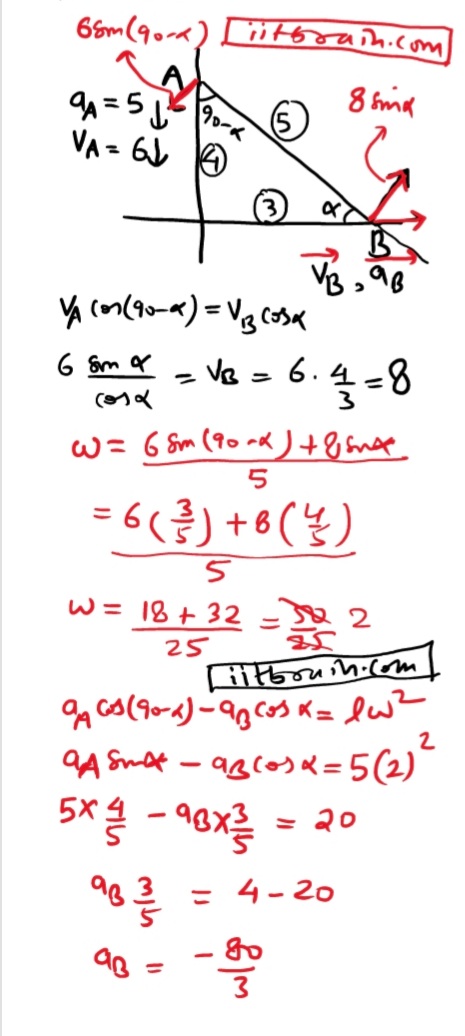 6sm(90-α) iitbrain.com
A
a_A = 5↓
V_A = 6↓
90-α
5
4
8 sinα
3
α
B
V_B , a_B
V_A cos(90-α) = V_B cosα
6 sinα/cosα = V_B = 6 · 4/3 = 8
ω = (6 sin(90-α) + 8 sinα)/5
= (6(3/5) + 8(4/5))/5
ω = (18 + 32)/25 = 50/25 2
iitbrain.com
a_A cos(90-α) - a_B cos α = lω²
a_A sinα - a_B cosα = 5(2)²
5×4/5 - a_B×3/5 = 20
a_B 3/5 = 4-20
a_B = -80/3